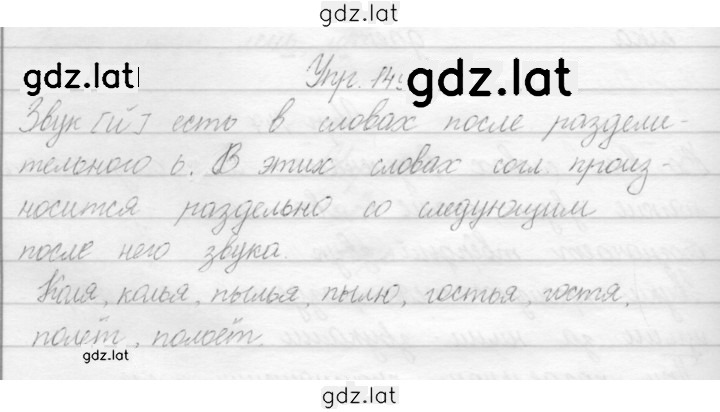 gdz.lat
gdz.lat
Упр. 149 gdz.lat
Звук [й'] есть в словах после раздели-
тельного ь. В этих словах согл. произ-
носится раздельно со следующим
после него звука.
Коля, колья, пылья, пылю, гостья, гостя,
полёт, польёт.
gdz.lat
gdz.lat